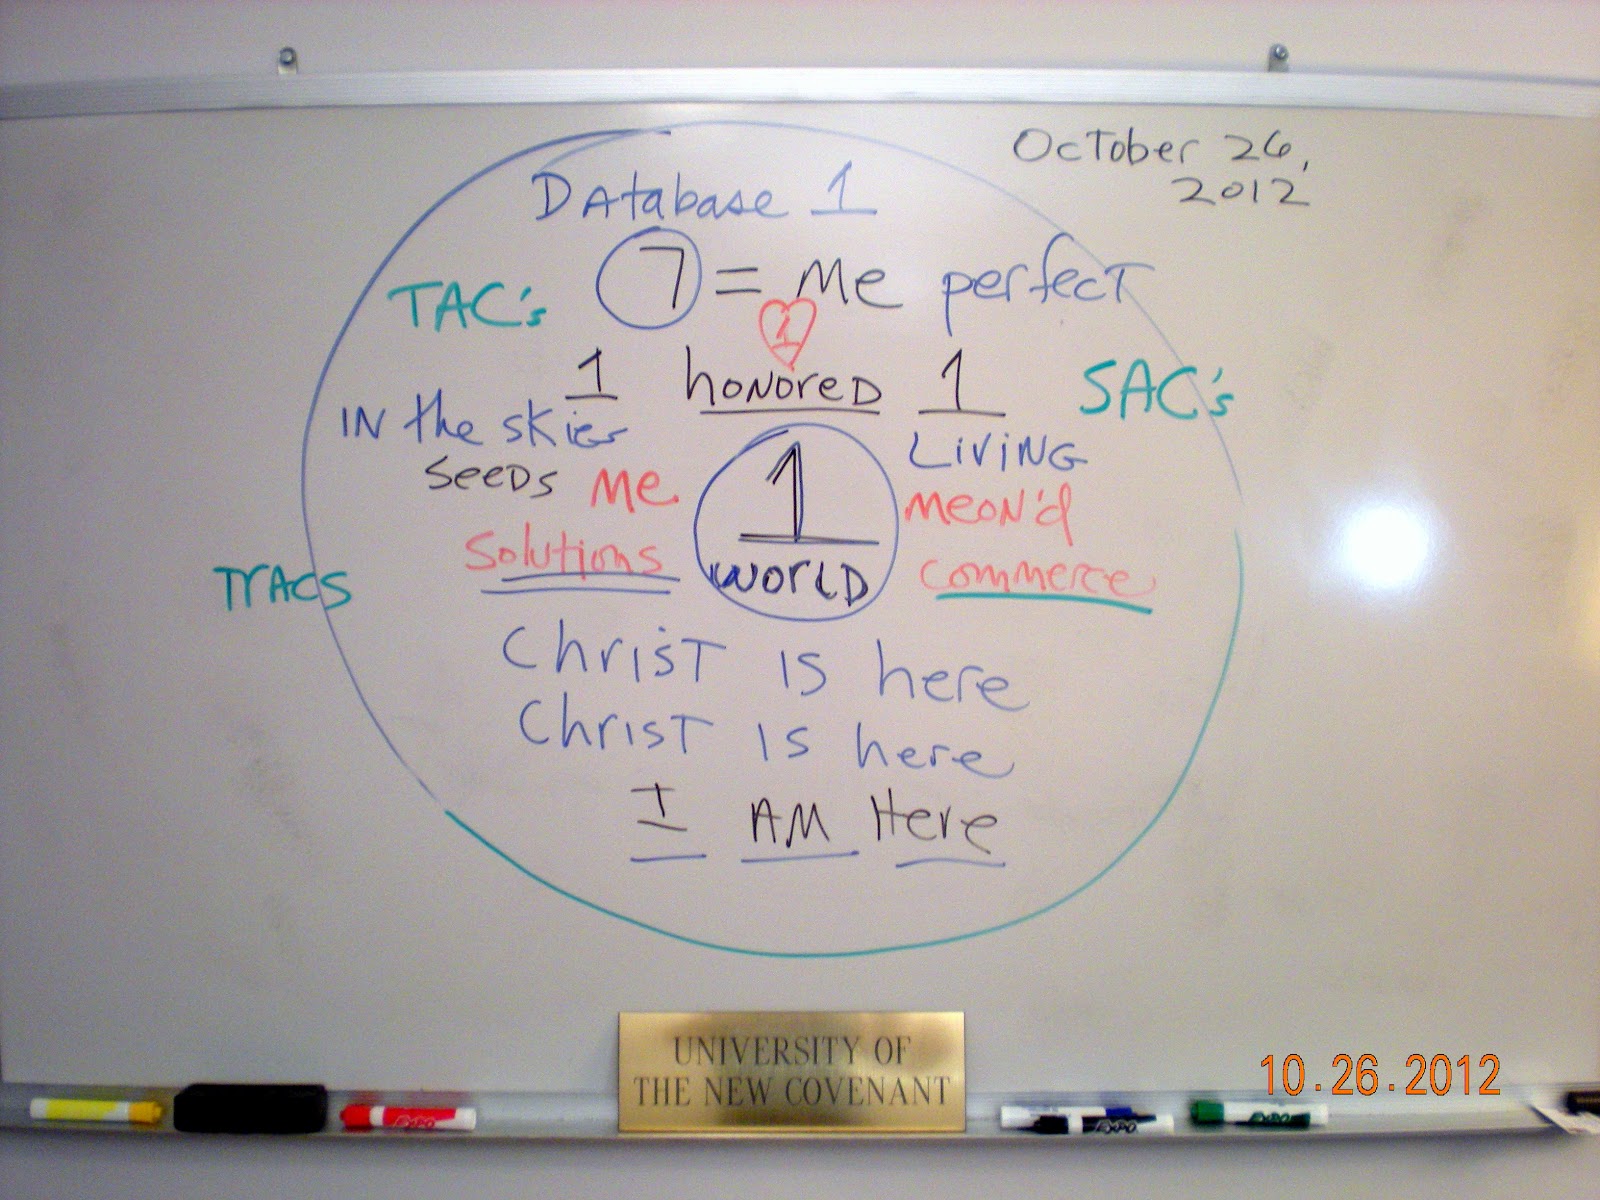 October 26,
2012
Database 1
7 = Me perfect
TAC's
1
1 honored 1
SAC's
IN the skies
LIVING
SEEDS Me
Meon'd
Solutions
commerce
1
WORLD
TrACS
Christ is here
Christ is here
I AM Here
UNIVERSITY OF
THE NEW COVENANT
10.26.2012
EXPO
EXPO
EXPO